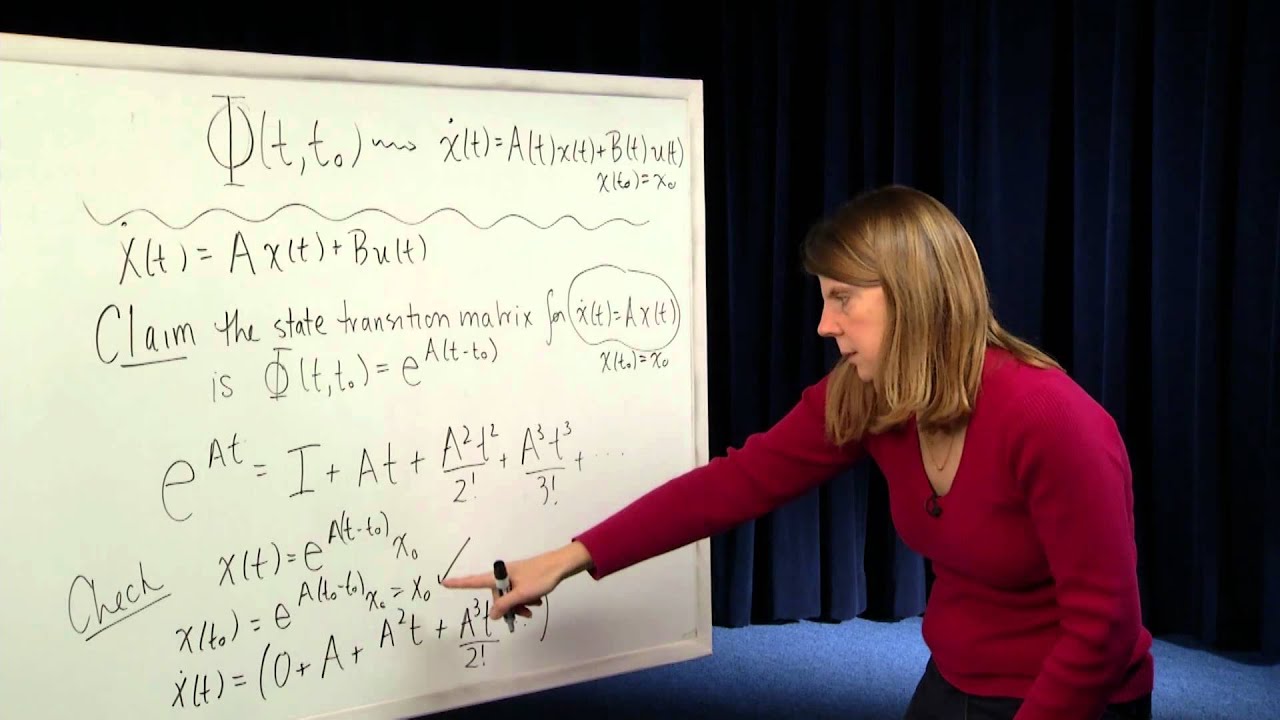 Φ(t,t₀) ⇝ ẋ(t)=A(t)x(t)+B(t)u(t)
x(t₀)=x₀
ẋ(t) = Ax(t)+Bu(t)
Claim the state transition matrix for ẋ(t)=Ax(t)
x(t₀)=x₀
is Φ(t,t₀) = e^{A(t-t₀)}
e^{At} = I + At + A²t²/2! + A³t³/3! + ...
Check x(t)=e^{A(t-t₀)}x₀
x(t₀) = e^{A(t₀-t₀)}x₀ = x₀ ✓
ẋ(t) = (0+A+A²t + A³t/2! )